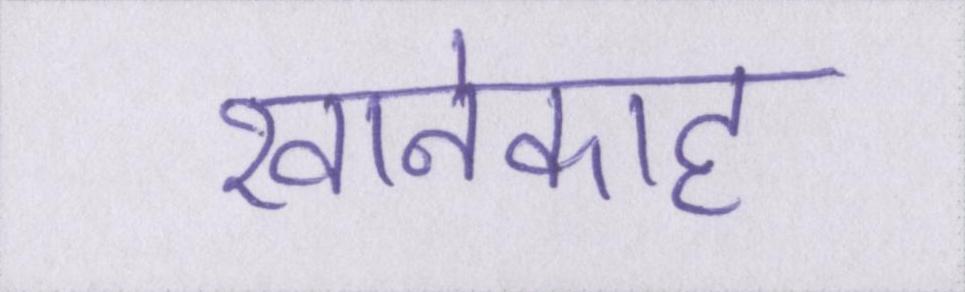 खानेकाह